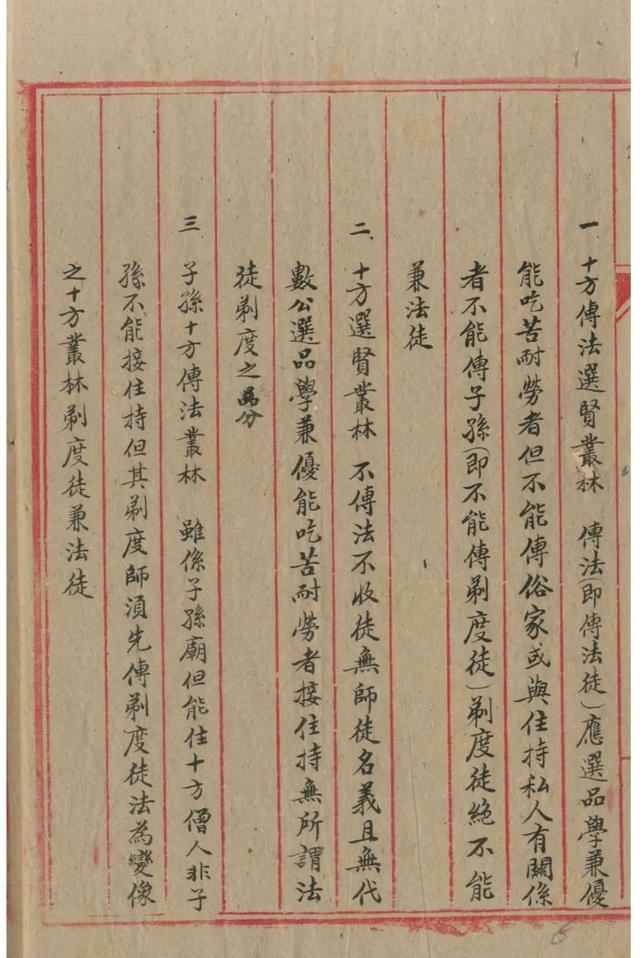 一、十方傳法選賢叢林　傳法(即傳法徒)應選品學兼優
能吃苦耐勞者但不能傳俗家或與住持私人有關係
者不能傳子孫(即不能傳剃度徒)剃度徒絕不能
兼法徒
二、十方選賢叢林　不傳法不收徒無師徒名義且無代
數公選品學兼優能吃苦耐勞者接住持無所謂法
徒剃度之分
三　子孫十方傳法叢林　雖係子孫廟但能住十方僧人非子
孫不能接住持但其剃度師須先傳剃度徒法為變像
之十方叢林剃度徒兼法徒